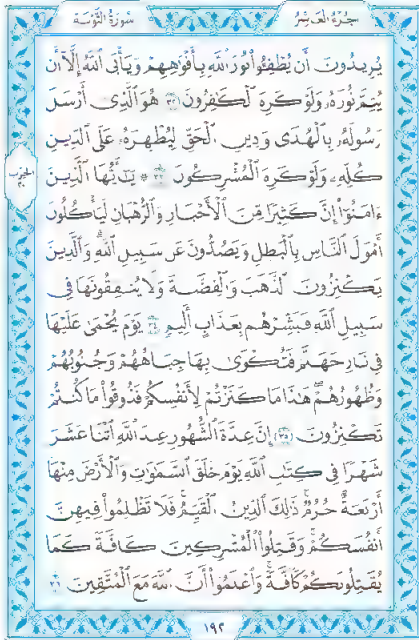 سورة التوبة
جزء العاشر
يُرِيدُونَ أَن يُطْفِئُوا نُورَ اللَّهِ بِأَفْوَاهِهِمْ وَيَأْبَى اللَّهُ إِلَّا أَن
يُتِمَّ نُورَهُ وَلَوْ كَرِهَ الْكَافِرُونَ ٣٢ هُوَ الَّذِي أَرْسَلَ
رَسُولَهُ بِالْهُدَى وَدِينِ الْحَقِّ لِيُظْهِرَهُ عَلَى الدِّينِ
كُلِّهِ وَلَوْ كَرِهَ الْمُشْرِكُونَ ٣٣ ۞ يَٰٓأَيُّهَا الَّذِينَ
الحزب ٢٠
ءَامَنُوا إِنَّ كَثِيرًا مِّنَ الْأَحْبَارِ وَالرُّهْبَانِ لَيَأْكُلُونَ
أَمْوَٰلَ النَّاسِ بِالْبَٰطِلِ وَيَصُدُّونَ عَن سَبِيلِ اللَّهِ وَالَّذِينَ
يَكْنِزُونَ الذَّهَبَ وَالْفِضَّةَ وَلَا يُنفِقُونَهَا فِي
سَبِيلِ اللَّهِ فَبَشِّرْهُم بِعَذَابٍ أَلِيمٍ ٣٤ يَوْمَ يُحْمَىٰ عَلَيْهَا
فِي نَارِ جَهَنَّمَ فَتُكْوَىٰ بِهَا جِبَاهُهُمْ وَجُنُوبُهُمْ
وَظُهُورُهُمْ هَٰذَا مَا كَنَزْتُمْ لِأَنفُسِكُمْ فَذُوقُوا مَا كُنتُمْ
تَكْنِزُونَ ٣٥ إِنَّ عِدَّةَ الشُّهُورِ عِندَ اللَّهِ اثْنَا عَشَرَ
شَهْرًا فِي كِتَٰبِ اللَّهِ يَوْمَ خَلَقَ السَّمَٰوَٰتِ وَالْأَرْضَ مِنْهَا
أَرْبَعَةٌ حُرُمٌ ذَٰلِكَ الدِّينُ الْقَيِّمُ فَلَا تَظْلِمُوا فِيهِنَّ
أَنفُسَكُمْ وَقَٰتِلُوا الْمُشْرِكِينَ كَافَّةً كَمَا
يُقَٰتِلُونَكُمْ كَافَّةً وَاعْلَمُوا أَنَّ اللَّهَ مَعَ الْمُتَّقِينَ ٣٦
١٩٢